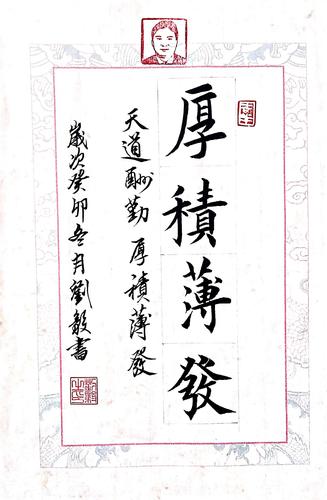 厚積薄發
天道酬勤 厚積薄發
歲次癸卯冬月劉毅書